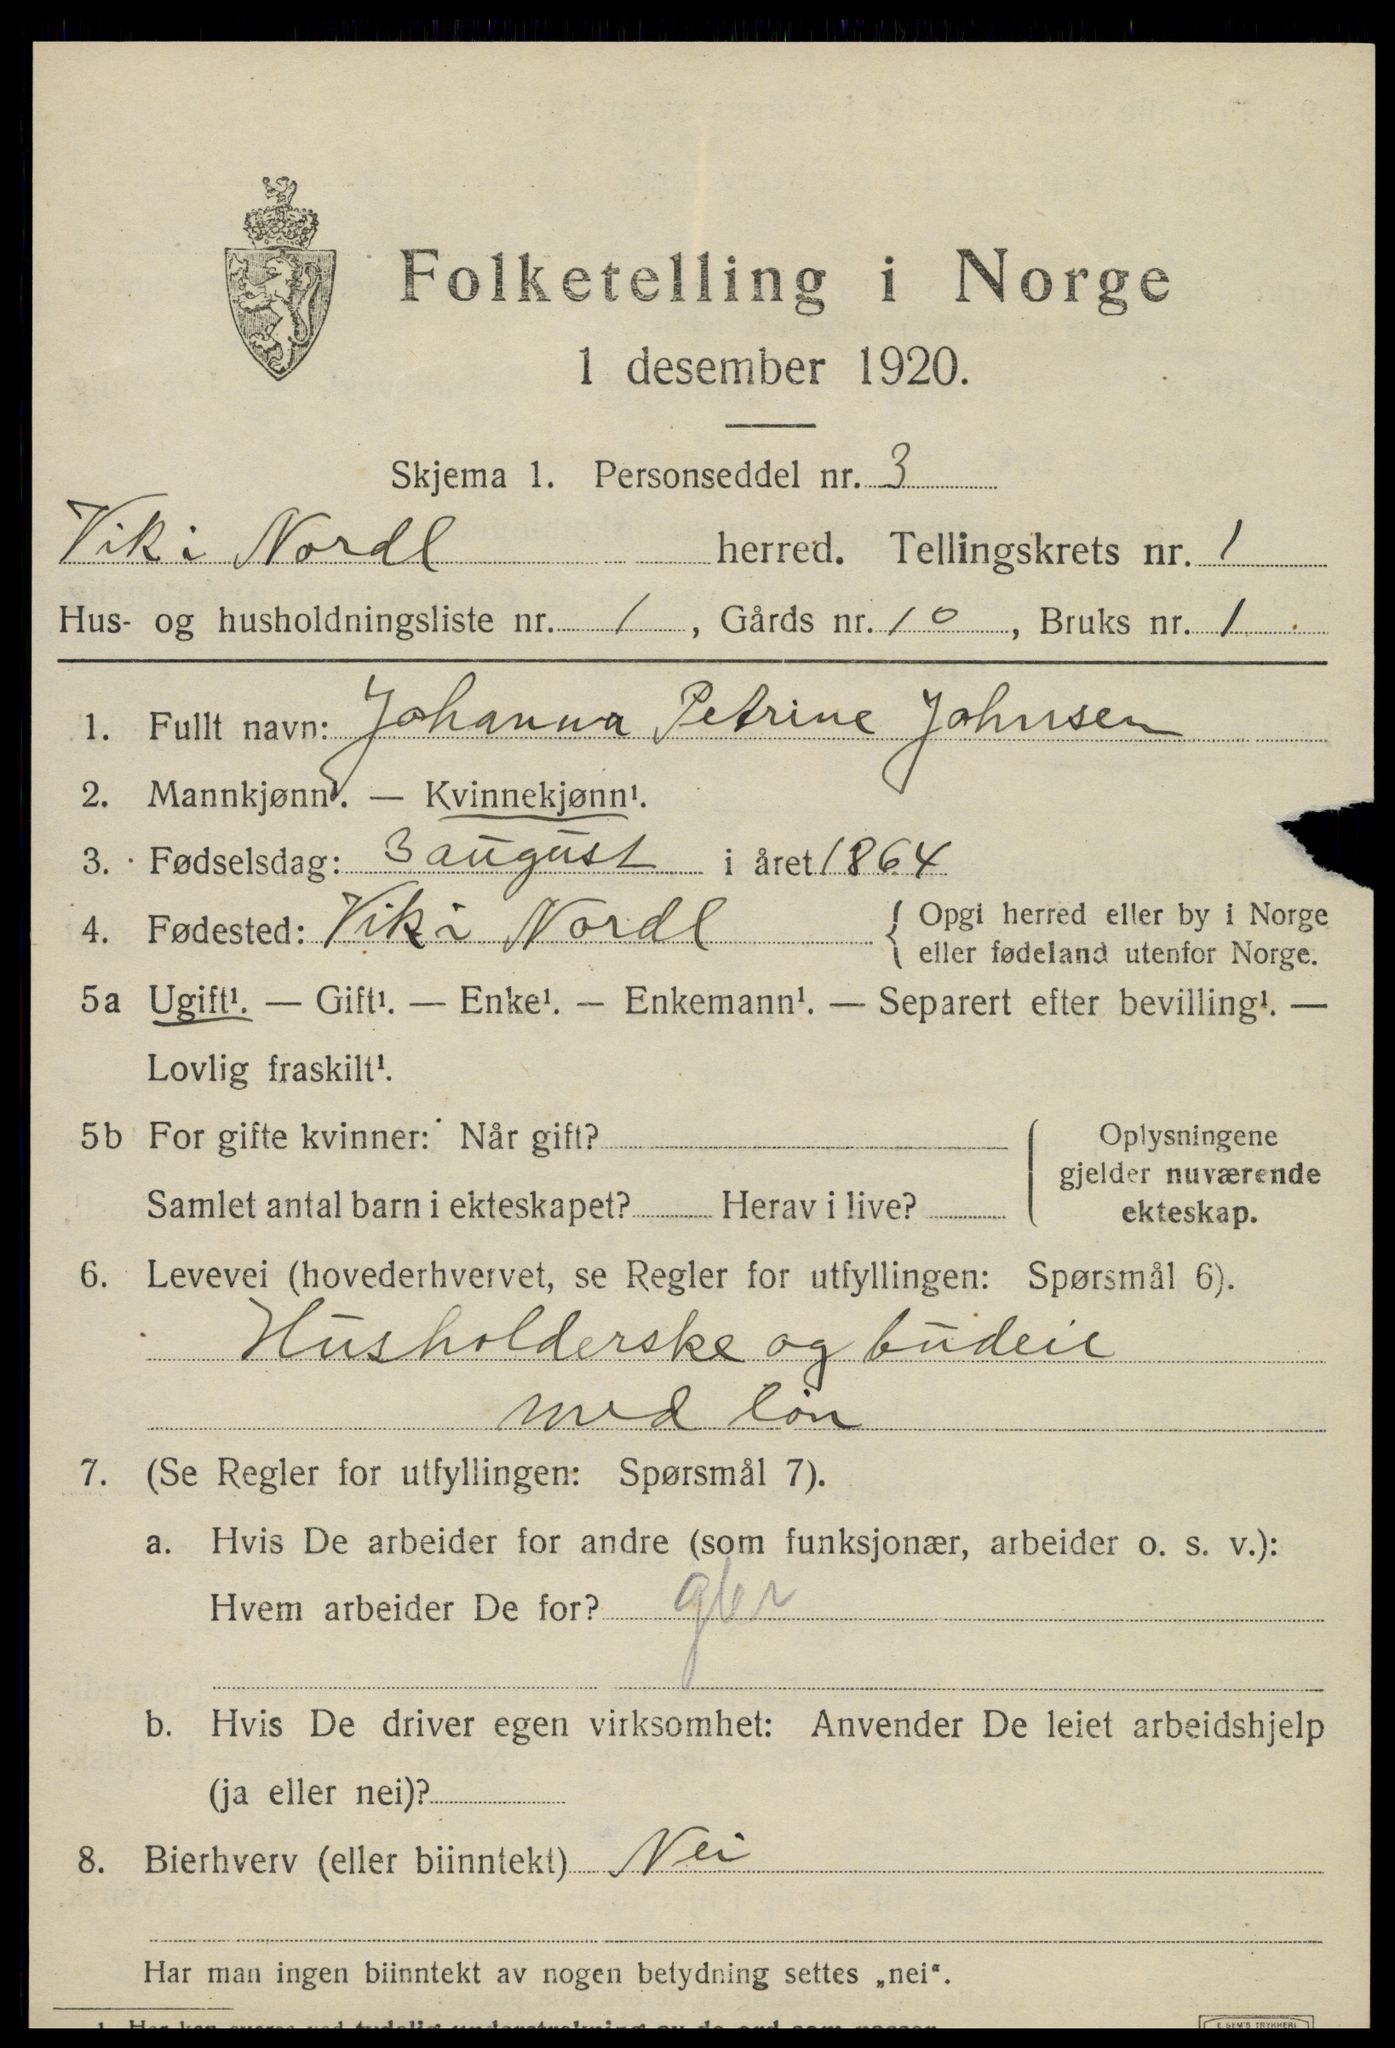 Folketelling i Norge
1 desember 1920.
Skjema 1. Personseddel nr. 3
Vik i Nordl herred. Tellingskrets nr. 1
Hus- og husholdningsliste nr. 1, Gårds nr. 10, Bruks nr. 1.
1. Fullt navn: Johanna Petrine Johnsen
2. Mannkjønn¹. — Kvinnekjønn¹.
3. Fødselsdag: 3 august i året 1864
4. Fødested: Vik i Nordl { Opgi herred eller by i Norge
eller fødeland utenfor Norge.
5a Ugift¹. — Gift¹. — Enke¹. — Enkemann¹. — Separert efter bevilling¹. —
Lovlig fraskilt¹.
5b For gifte kvinner: Når gift?
Samlet antal barn i ekteskapet? Herav i live?
Oplysningene
gjelder nuværende
ekteskap.
6. Levevei (hovederhvervet, se Regler for utfyllingen: Spørsmål 6).
Husholderske og budeie
med løn
7. (Se Regler for utfyllingen: Spørsmål 7).
a. Hvis De arbeider for andre (som funksjonær, arbeider o. s. v.):
Hvem arbeider De for?
b. Hvis De driver egen virksomhet: Anvender De leiet arbeidshjelp
(ja eller nei)?
8. Bierhverv (eller biinntekt) Nei
Har man ingen biinntekt av nogen betydning settes „nei“.